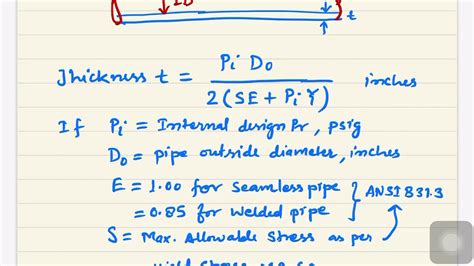 ID
t
Thickness t = Pi Do / 2(SE + Pi Y) inches
If Pi = Internal design Pr, psig
Do = pipe outside diameter, inches
E = 1.00 for seamless pipe } ANSI B31.3
= 0.85 for welded pipe
S = Max. Allowable Stress as per